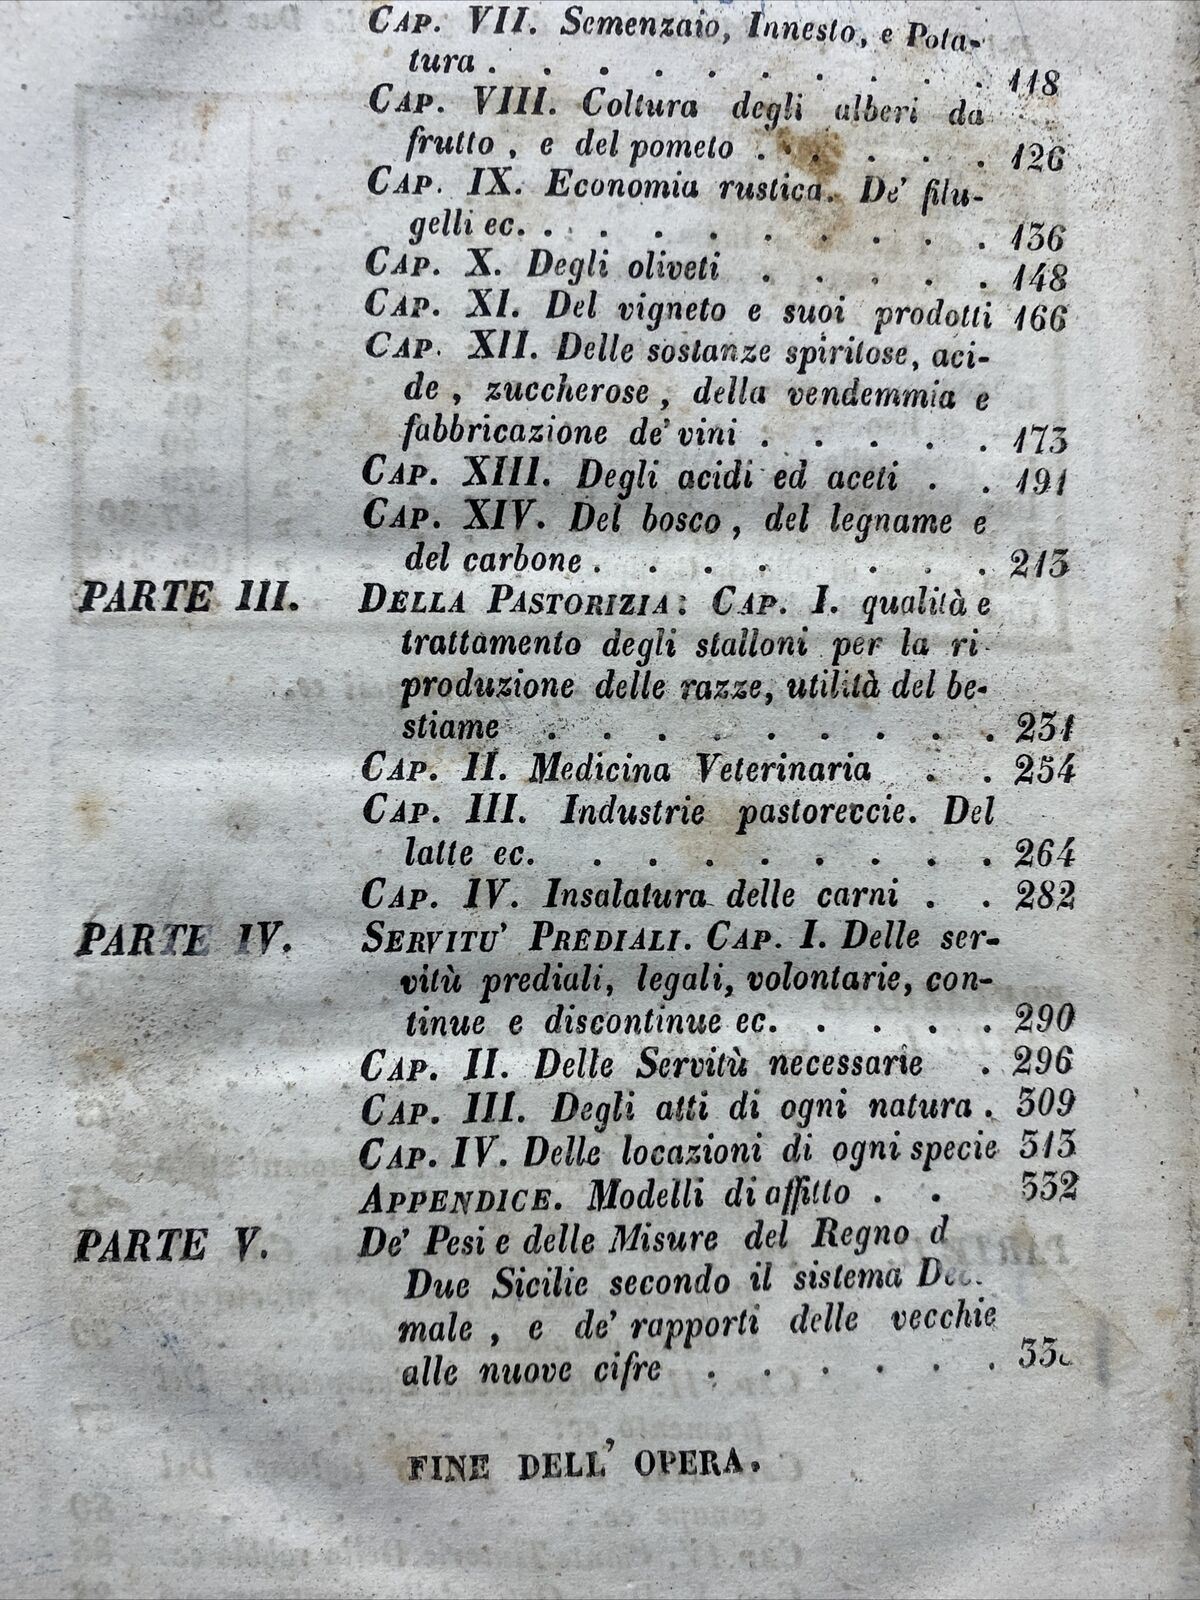 CAP. VII. Semenzaio, Innesto, e Pota-
tura . . . . . . . . . . 118
CAP. VIII. Coltura degli alberi da
frutto , e del pometo . . . . . . 126
CAP. IX. Economia rustica. De' filu-
gelli ec. . . . . . . . . . . 136
CAP. X. Degli oliveti . . . . . 148
CAP. XI. Del vigneto e suoi prodotti 166
CAP. XII. Delle sostanze spiritose, aci-
de , zuccherose , della vendemmia e
fabbricazione de' vini . . . . . 173
CAP. XIII. Degli acidi ed aceti . . 191
CAP. XIV. Del bosco , del legname e
del carbone . . . . . . . . 213
PARTE III. DELLA PASTORIZIA: CAP. I. qualità e
trattamento degli stalloni per la ri-
produzione delle razze, utilità del be-
stiame . . . . . . . . . 231
CAP. II. Medicina Veterinaria . . 254
CAP. III. Industrie pastoreccie. Del
latte ec. . . . . . . . . 264
CAP. IV. Insalatura delle carni . . 282
PARTE IV. SERVITU' PREDIALI. CAP. I. Delle ser-
vitù prediali, legali, volontarie, con-
tinue e discontinue ec. . . . . . 290
CAP. II. Delle Servitù necessarie . 296
CAP. III. Degli atti di ogni natura . 309
CAP. IV. Delle locazioni di ogni specie 313
APPENDICE. Modelli di affitto . . 332
PARTE V. De' Pesi e delle Misure del Regno d
Due Sicilie secondo il sistema
male , e de' rapporti delle vecchie
alle nuove cifre . . . . . .
FINE DELL' OPERA.